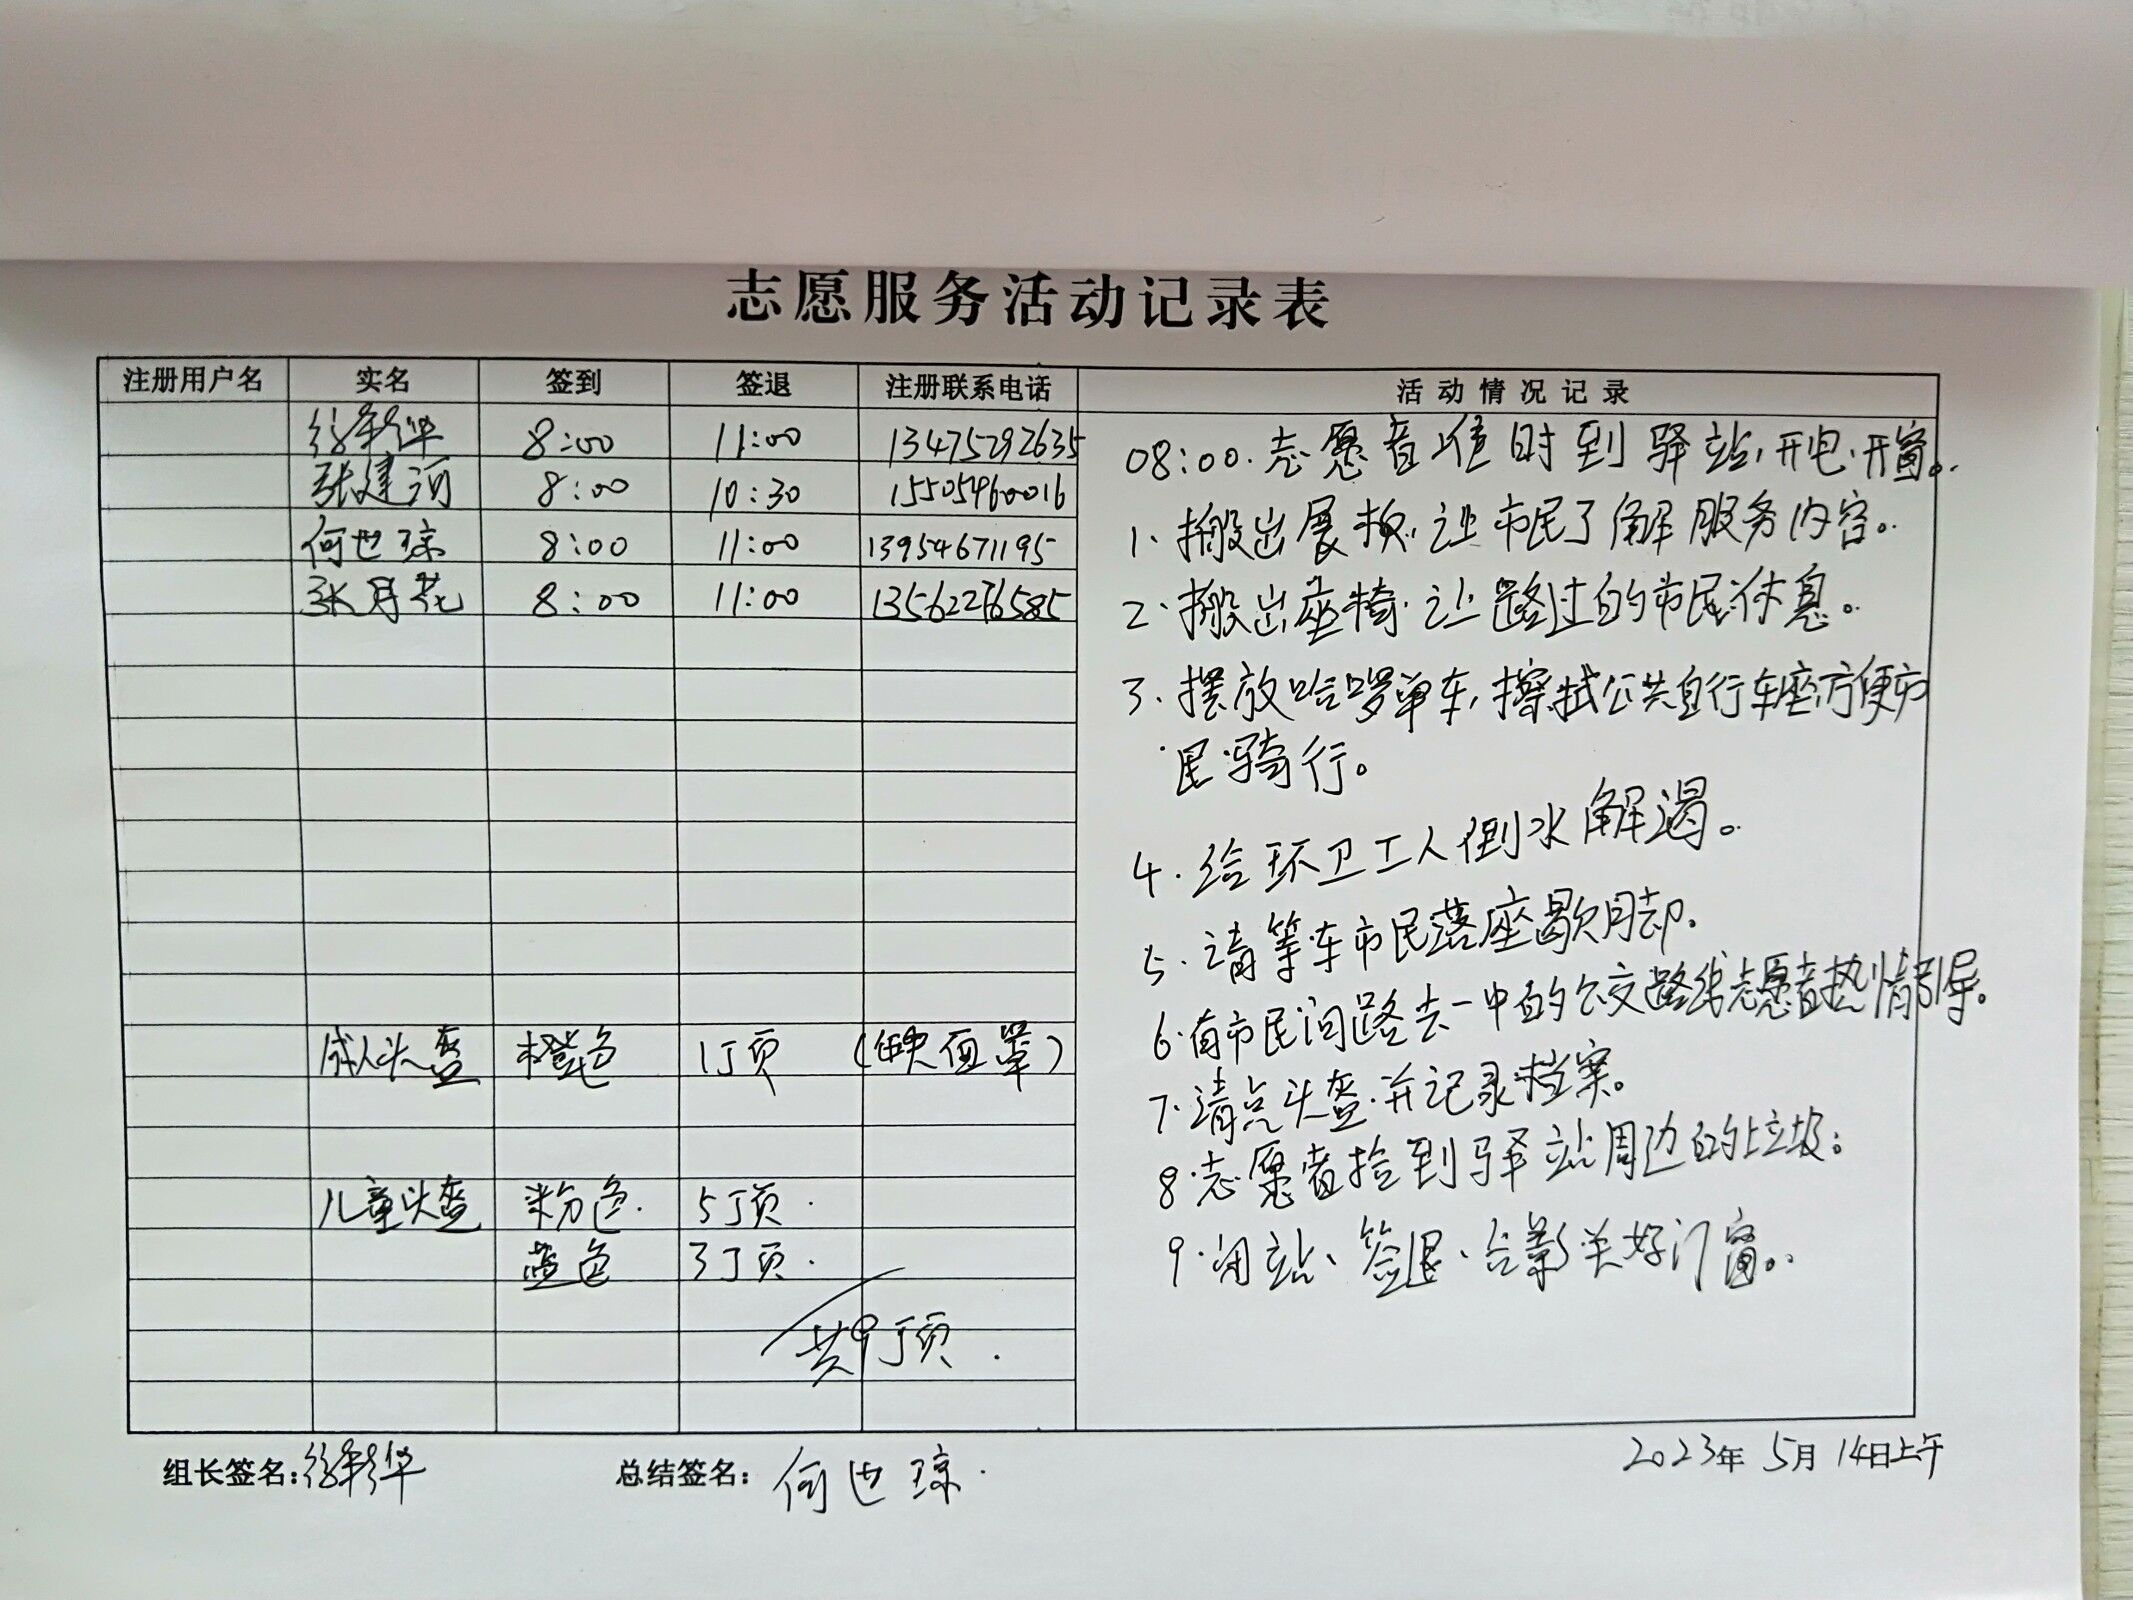 志愿服务活动记录表
注册用户名 实名 签到 签退 注册联系电话 活动情况记录
8:00 11:00 13475292635
张建河 8:00 10:30 15505460016
何世琼 8:00 11:00 13954671195
张月花 8:00 11:00 13562276585
成人头盔 橙色 1顶 (缺面罩)
儿童头盔 粉色. 5顶.
蓝色 3顶.
共9顶.
08:00.志愿者准时到驿站,开电、开窗。
1、搬出展板,让市民了解服务内容。
2、搬出座椅,让路过的市民休息。
3、摆放哈啰单车,擦拭公共自行车座,方便市
民骑行。
4.给环卫工人倒水解渴。
5.请等车市民落座歇脚.
6.有市民问路去一中的公交路线志愿者热情引导。
7.清点头盔,并记录档案。
8.志愿者捡到驿站周边的垃圾;
9.闭站、签退、合影关好门窗。
组长签名: 总结签名: 何世琼. 2023年5月14日上午